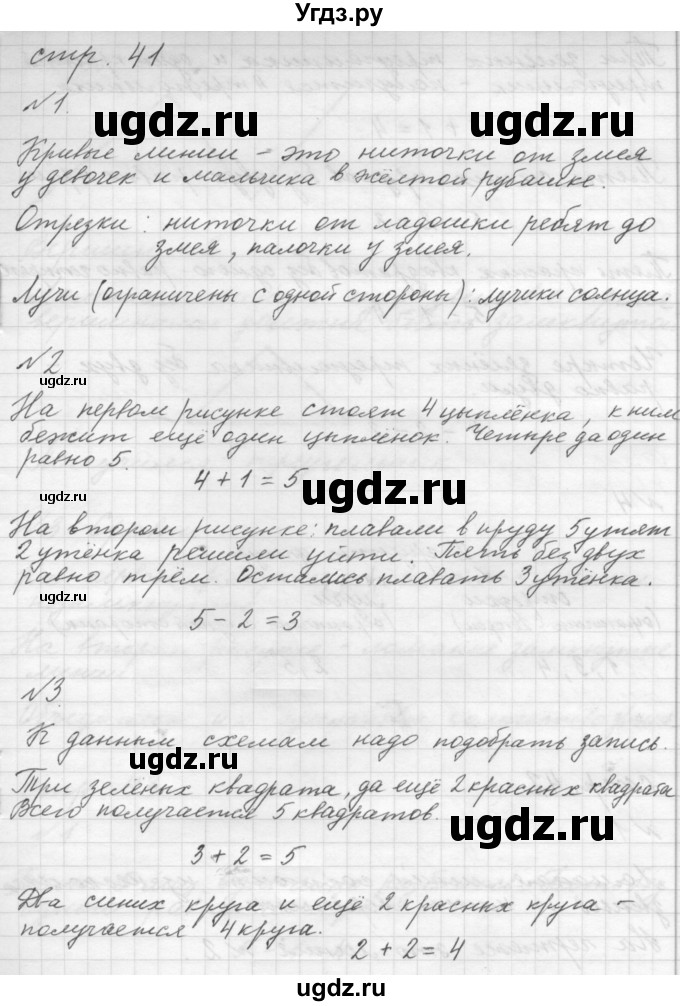 Угдз.ру
стр. 41
№1.
ugdz.ru ugdz.ru
Кривые линии - это ниточки от змея
у девочек и мальчика в жёлтой рубашке.
Отрезки: ниточки от ладошки ребят до
змея, палочки у змея.
Лучи (ограничены с одной стороны): лучики солнца.
№2
ugdz.ru
На первом рисунке стоят 4 цыплёнка, к ним
бежит ещё один цыплёнок. Четыре да один
равно 5.
4 + 1 = 5
ugdz.ru
На втором рисунке: плавали в пруду 5 утят
2 утёнка решили уйти. Пять без двух
равно трём. Остались плавать 3 утёнка.
ugdz.ru
5 - 2 = 3
№3
ugdz.ru
К данным схемам надо подобрать запись.
Три зелёных квадрата, да ещё 2 красных квадрата
Всего получается 5 квадратов.
ugdz.ru
3 + 2 = 5
Два синих круга и ещё 2 красных круга -
получается 4 круга.
2 + 2 = 4
ugdz.ru